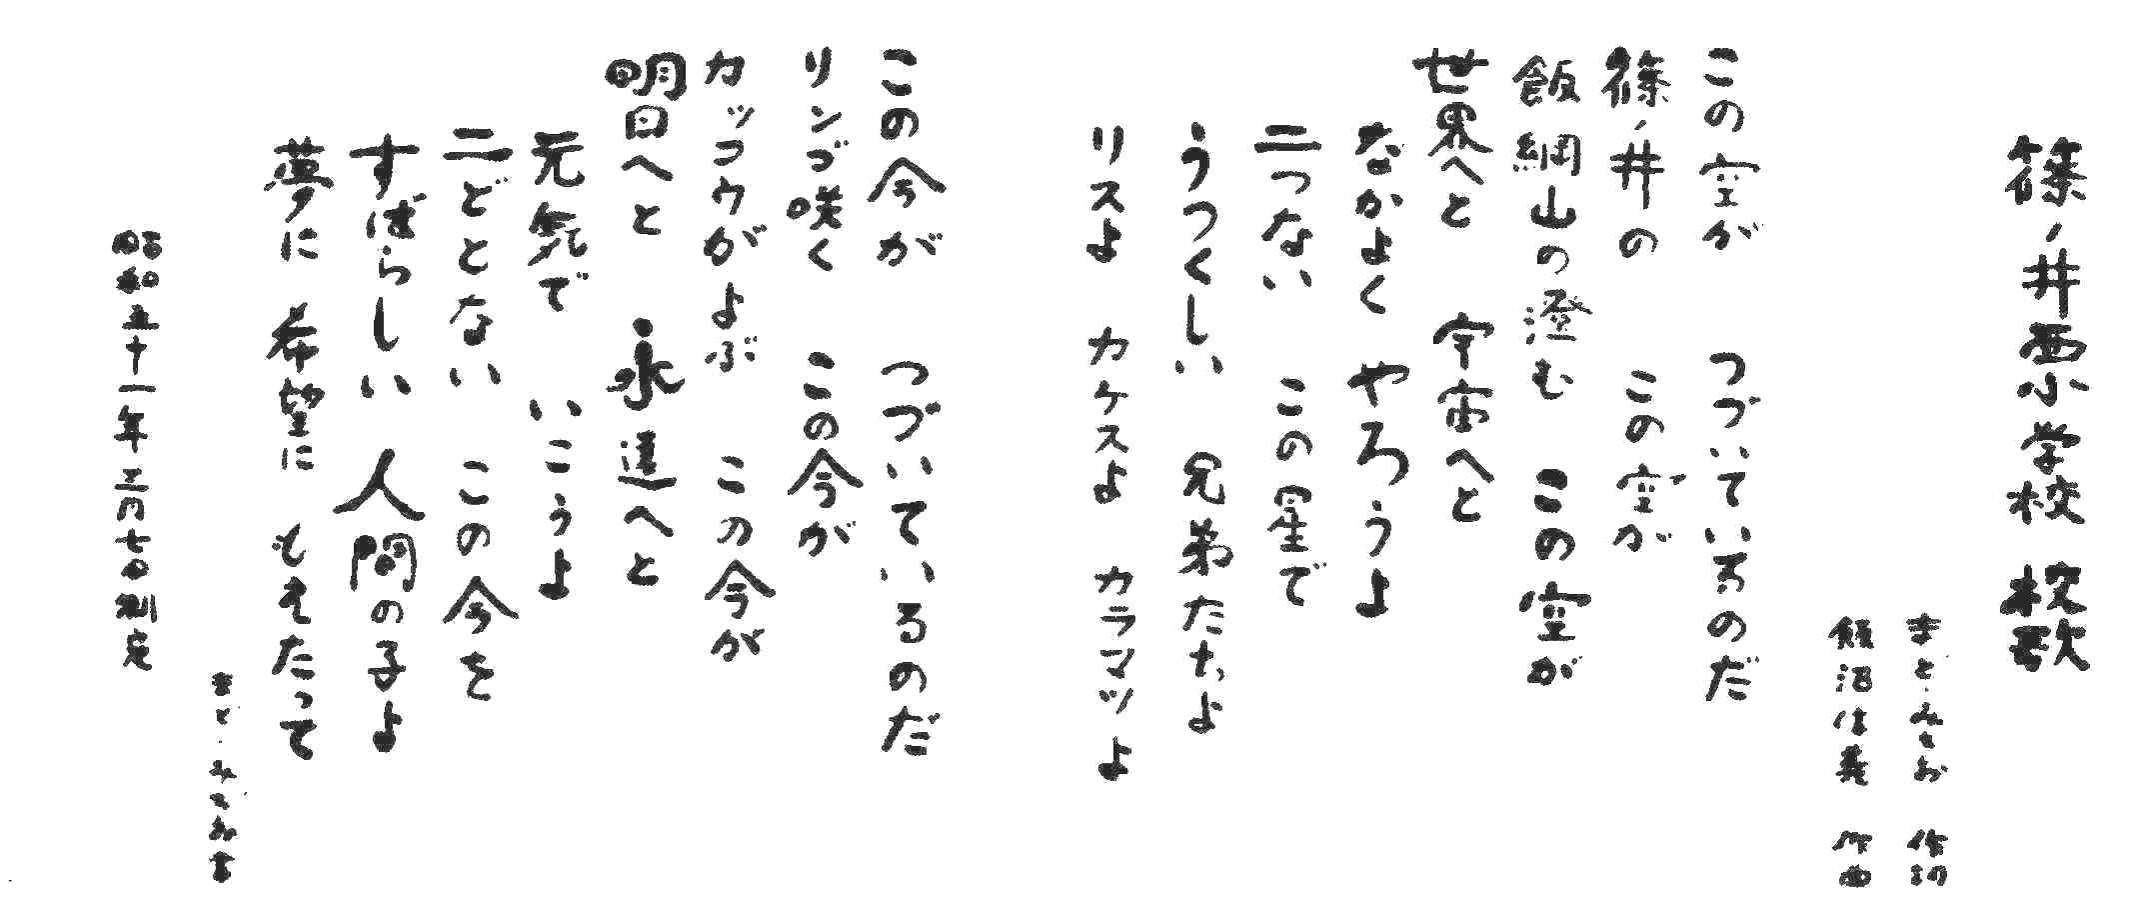 篠ノ井西小学校 校歌
まど・みちお 作詞
飯沼信義 作曲
この空が つづいているのだ
篠ノ井の この空が
飯綱山の澄む この空が
世界へと 宇宙へと
なかよく やろうよ
二つない この星で
うつくしい 兄弟たちよ
リスよ カケスよ カラマツよ
この今が つづいているのだ
リンゴ咲く この今が
カッコウがよぶ この今が
明日へと 永遠へと
元気で いこうよ
二どとない この今を
すばらしい 人間の子よ
夢に 希望に もえたって
まど・みちお書
昭和五十一年三月七日制定